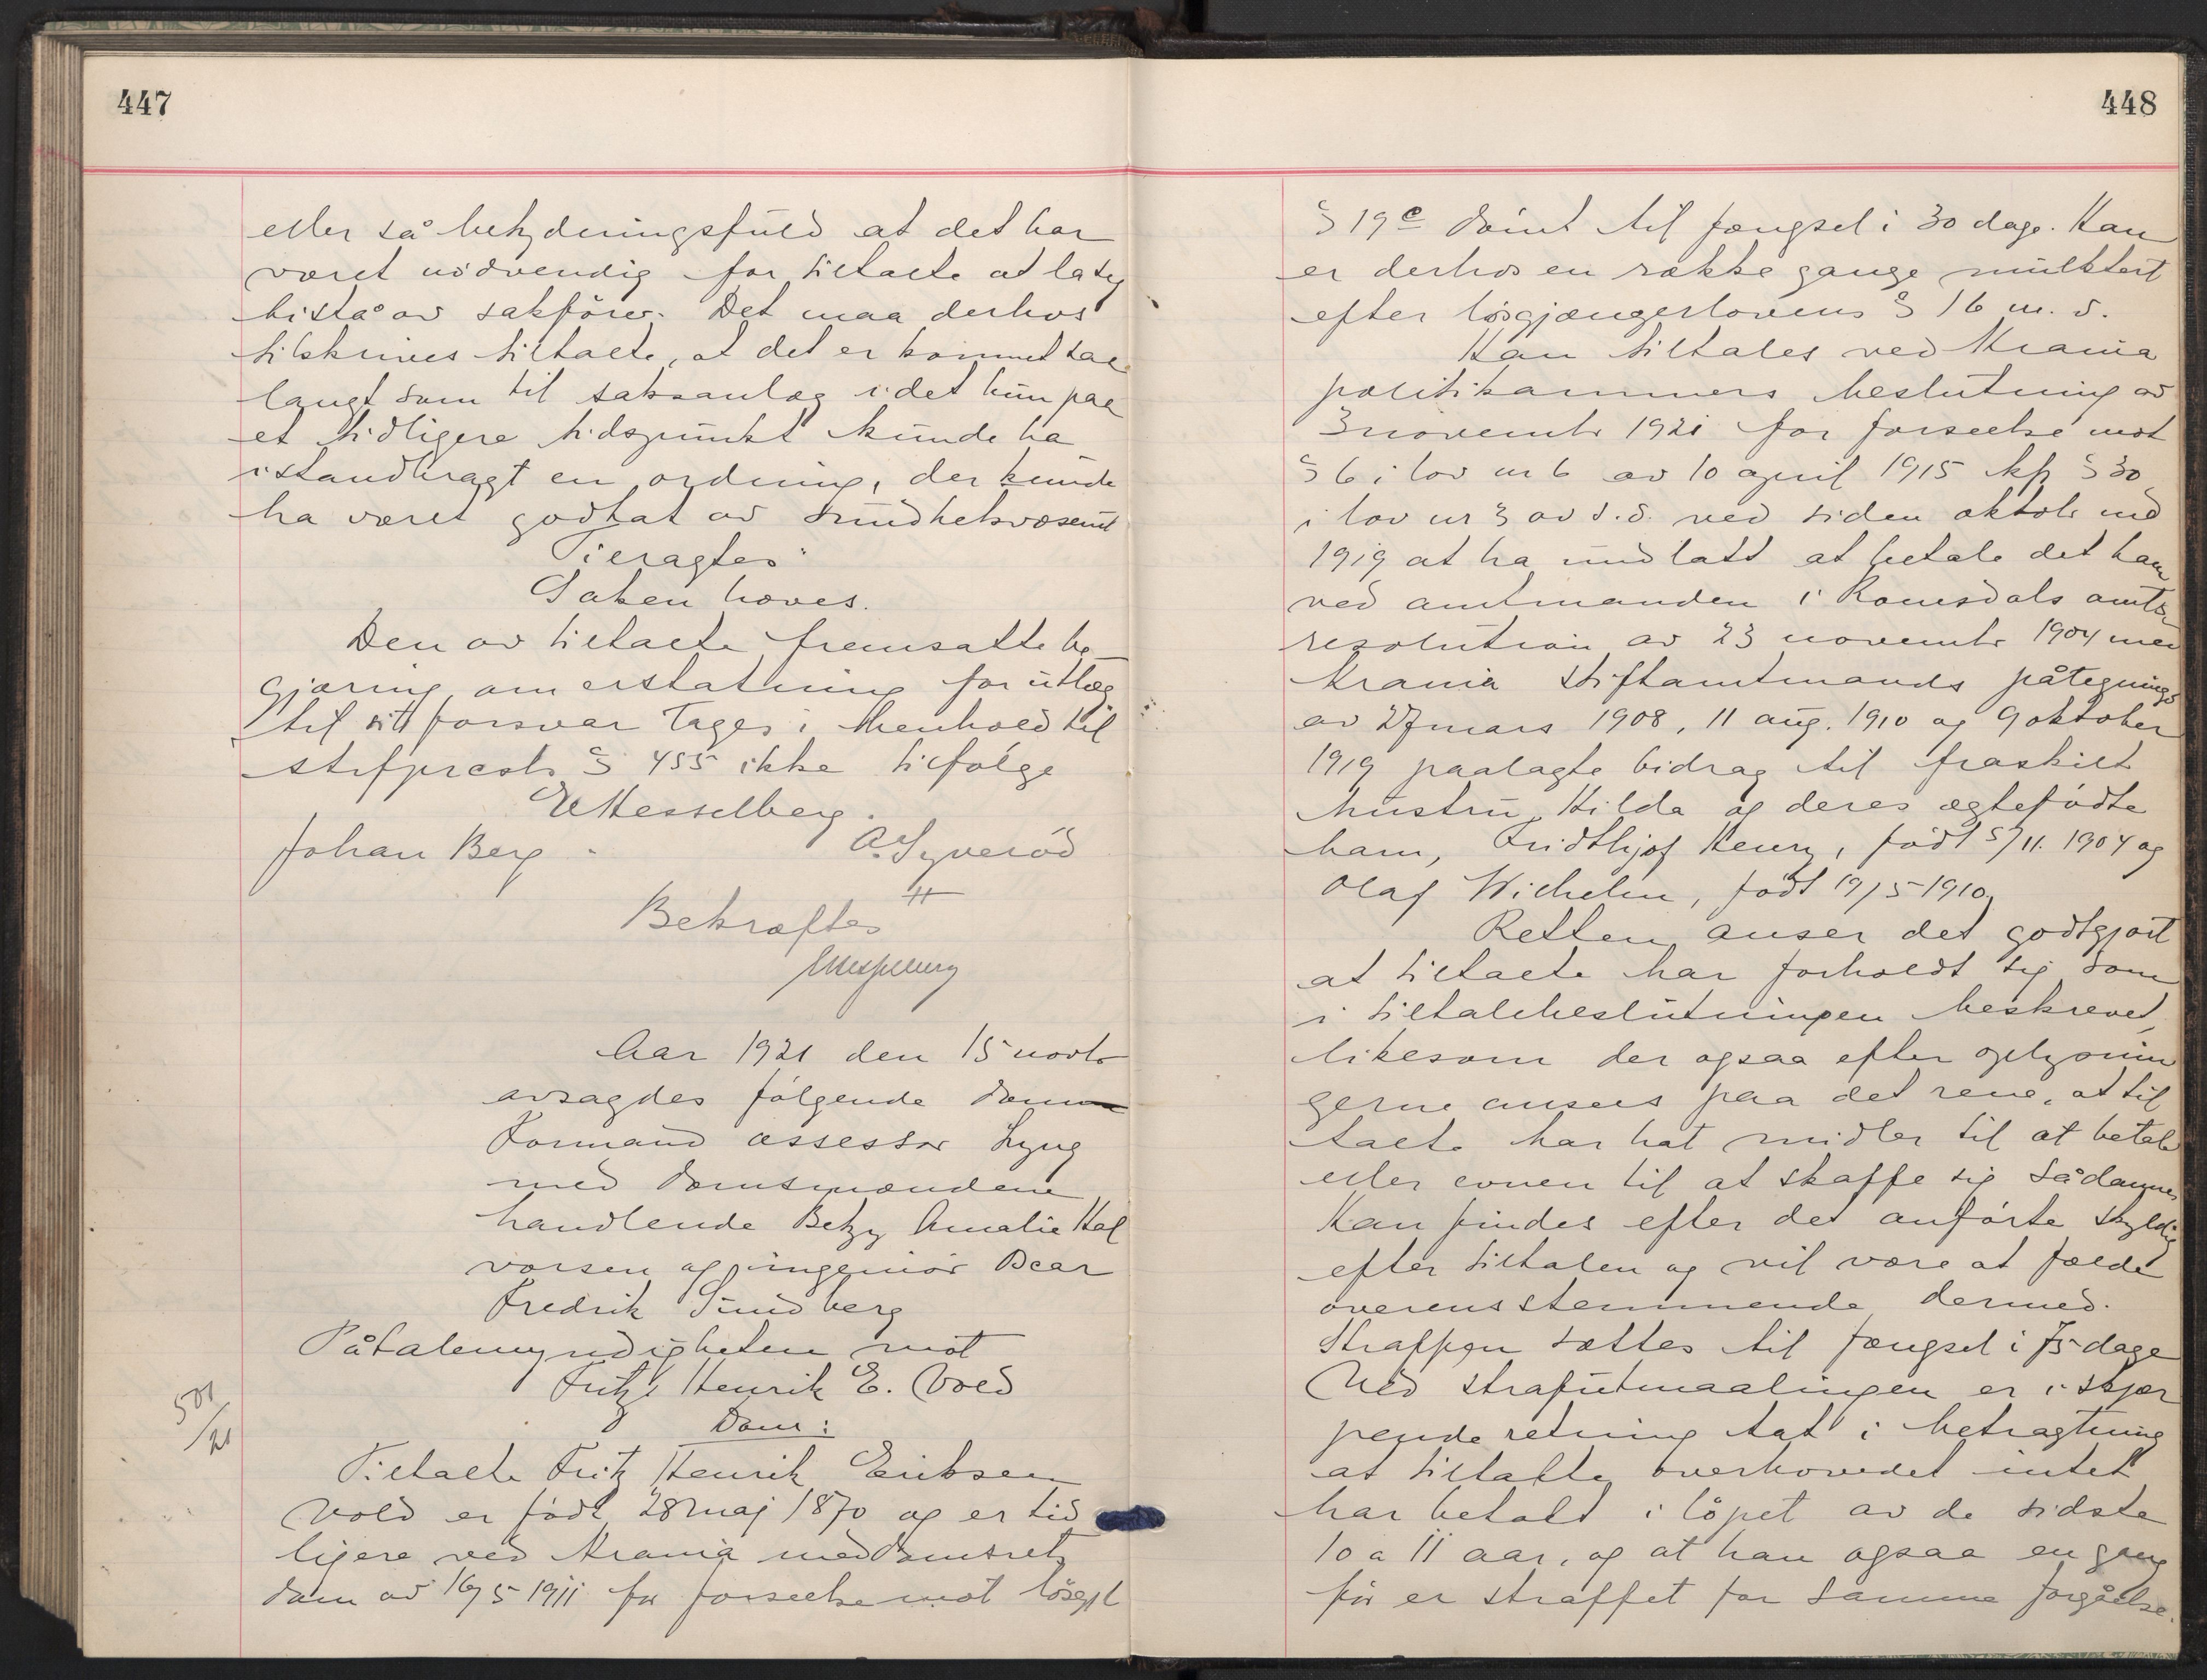 447
eller så betydningsfuld at det har
været nödvendig for tiltalte at la sig
bistå av sakförer. Det maa derhos
tilskrives tiltalte, at det er kommet saa
langt som til saksanlæg idet hun paa
et tidligere tidspunkt kunde ha
istandbragt en ordning, der kunde
ha været godtat av sundhetsvæsenet
Ti eragtes:
Saken hæves.
Den av tiltalte fremsatte be-
gjæring om erstatning for utlæg
til sitt forsvar tages i henhold til
strfprcsls § 455 ikke tilfölge
E Hesselberg.
Johan Berg. A. Syveröd
Bekræftes
EHesselberg
Aar 1921 den 15 novbr
avsagdes fölgende dom
Formand assessor Lyng
med domsmændene
handlende Betzy Amalie Hal
vorsen og ingeniör Bear
Fredrik Sundberg
Påtalemyndigheten mot
Fritz Henrik E. Vold
Dom:
501/21
Tiltalte Fritz Henrik Eriksen
Vold er född 28 maj 1870 og er tid
ligere ved Krania meddomsrets
dom av 16/5 1911 for forseelse mot lösgjl
448
§ 19 c dömt til fængsel i 30 dage. Han
er derhos en række gange mulktert
efter lösgjængerlovens § 16 m. v.
Han tiltales ved Krania
politikammers beslutning av
3 novembr 1921 for forseelse mot
§ 6 i lov nr 6 av 10 april 1915 kfr § 30
i lov nr 3 av s. d. ved siden oktobr md
1919 at ha undlatt at betale det ham
ved amtmanden i Romsdals amts
resolution av 23 novembr 1904 med
Krania Stiftamtmands påtegnings
av 27 mars 1908, 11 aug. 1910 og 9 oktober
1919 paalagte bidrag til fraskilt
hustru Hilda og deres ægtefödte
barn, Fridthjof Henry, födt 5/11. 1904 og
Olaf Wilhelm, födt 19/5 1910.
Retten anser det godtgjort
at tiltalte har forholdt sig som
i tiltalebeslutningen beskrevet,
likesom der ogsaa efter oplysnin
gerne ansees paa det rene, at til
talte har hat midler til at betale
eller evnen til at skaffe sig sådanne
Han findes efter det anförte skyldig
efter tiltalen og vil være at fælde
overensstemmende dermed.
Straffen sættes til fængsel i 75 dage
Ved strafutmaalingen er i skjær
pende retning tat i betragtning
at tiltalte overhovedet intet
har betalt i löpet av de sidste
10 a 11 aar, og at han ogsaa en gang
för er straffet for samme forgåelse.